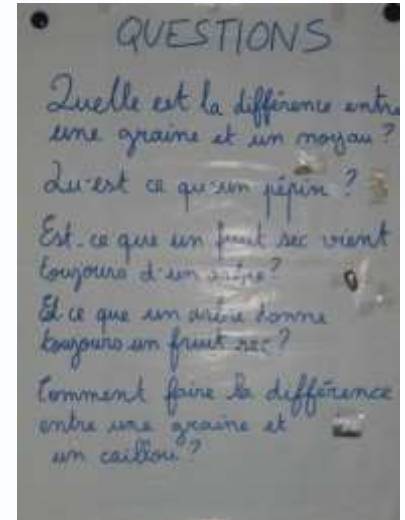 QUESTIONS
Quelle est la différence entre
une graine et un noyau ?
Qu'est ce qu'un pépin ?
Est-ce que un fruit sec vient
toujours d'un arbre ?
Est ce que un arbre donne
toujours un fruit sec ?
Comment faire la différence
entre une graine et
un caillou ?